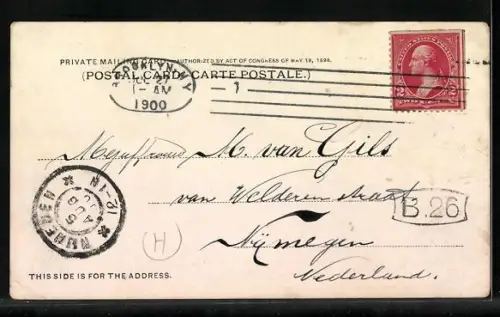 PRIVATE MAILING CARD. AUTHORIZED BY ACT OF CONGRESS OF MAY 19, 1898.
(POSTAL CARD: CARTE POSTALE.)
BROOKLYN, N.Y.
27
1-AM
1900
1
2 2
Mejuffrouw M. van Gils
van Welderen straat
B.26
Nijmegen
Nederland.
NIJMEGEN
AUG
12-1N
(H)
THIS SIDE IS FOR THE ADDRESS.